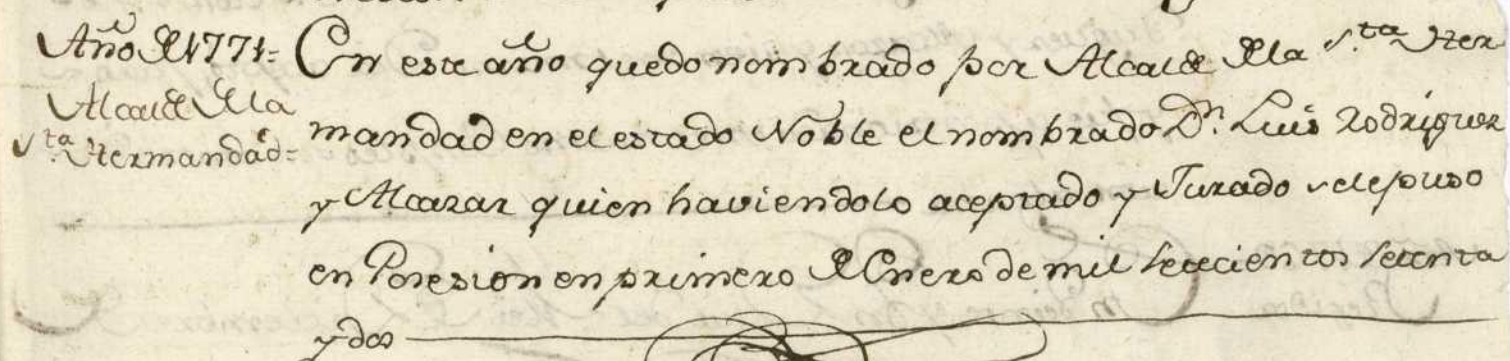 Año de 1771=
Alcalde de la
S.ta Hermandad=
En este año quedo nombrado por Alcalde de la S.ta Her
mandad en el estado Noble el nombrado D.n Luis Rodriguez
y Alcazar quien haviendolo aceptado y Jurado se le puso
en Posesion en primero de Enero de mil setecientos setenta
y dos